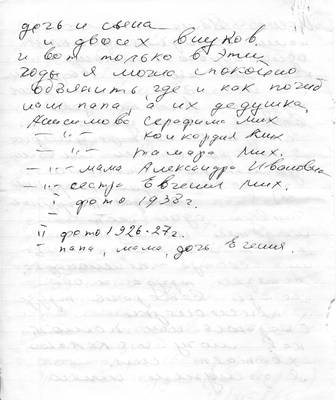 дочь и сына
и двосех внуков.
и вот только в эти
годы я могла спокойно
объяснить, где и как погиб
наш папа, а их дедушка.
Анисимова Серафима Мих
— " — Конкордия Мих.
— " — Тамара Мих.
— " — мама Александра Ивановна
— " — сестра Евгения Мих.
I фото 1938 г.
—
II фото 1926-27 г.
— папа, мама, дочь Евгения.